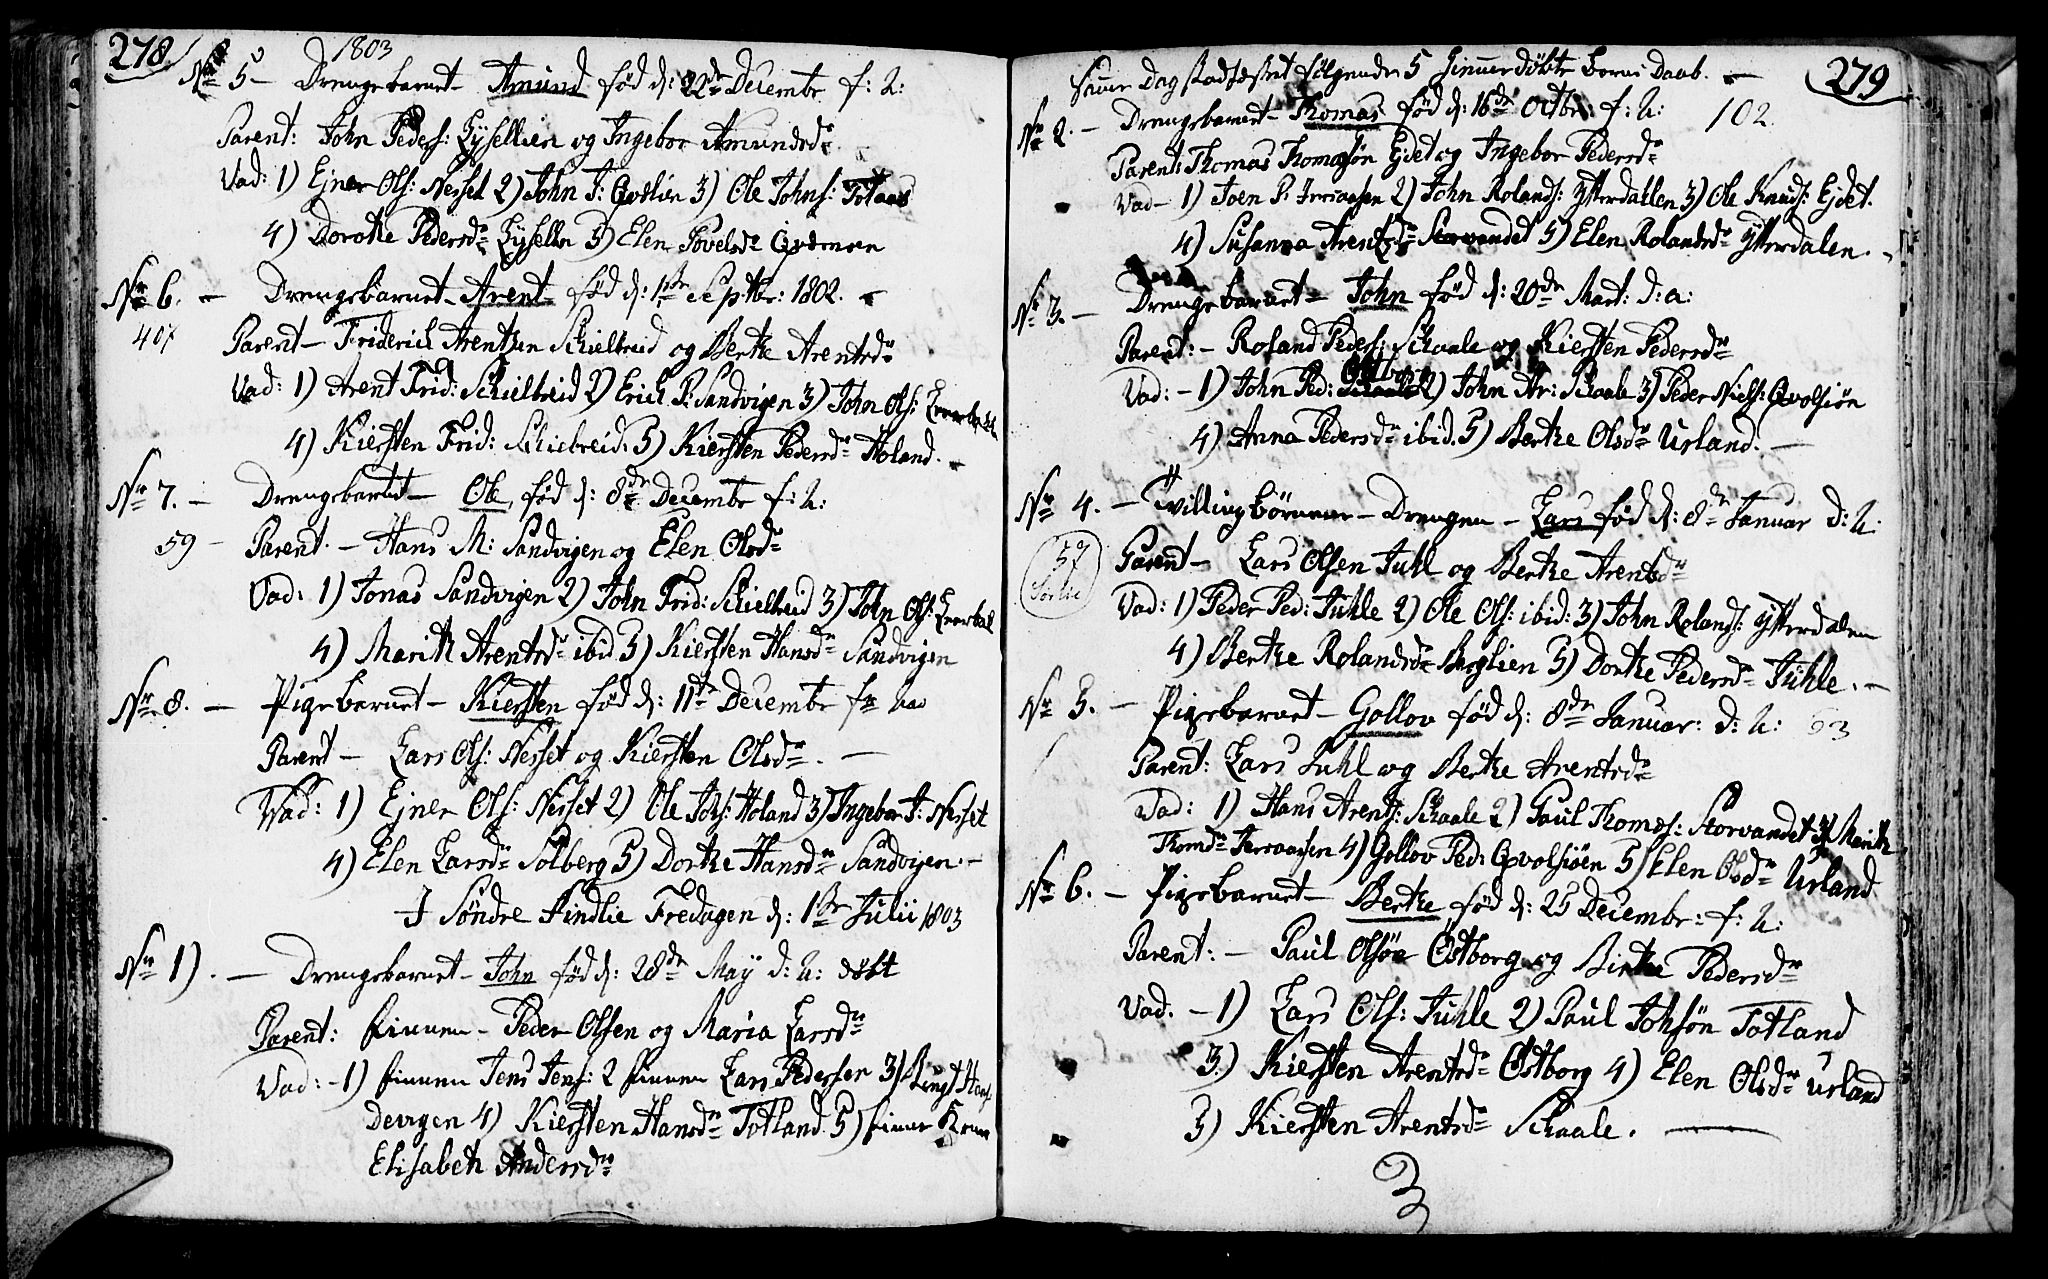 278.
1803
No 5 - Drengebarnet - Amund fød d: 22de Decembr f: A:
Parent: John Peders: Lysellien og Ingebor Amundsdr
Vad: 1) Ejner Ols: Nesset 2) John J: Qvelien 3) Ole Johns: Totaas
4) Dorothe Pedersdr Lysellien 5) Elen Povelsdr
Nr 6. - Drengebarnet - Arent - fød d: 1ste Septbr: 1802. -
40
Parent - Friderich Arentzen Schielbreid og Berthe Arentsdr
Vad: 1) Arent Frid: Schielbreid 2) Erich P: Sandvigen 3) John Ols:
4) Kiersten Frid: Schielbreid 5) Kiersten Pedersdr Holand. -
Nr 7. - Drengebarnet - Ole, fød d: 8de Decembr f: A:
59 - Parent. - Hans M: Sandvigen og Elen Olsdr
Vad: 1) Jonas Sandvigen 2) John Frid: Schielbreid 3) John Ols:
4) Marith Arentsdr ibid 5) Kiersten Hansdr Sandvigen
Nr 8. - Pigebarnet - Kiersten fød d: 11te Decembr
Parent - Lars Ols: Nesset og Kiersten Olsdr. -
Vad: 1) Ejner Ols: Nesset 2) Ole Johs: Holand 3) Ingebor J: Nesset
4) Elen Larsdr Solberg 5) Dorthe Hansdr Sandvigen. -
I Søndre Findlie Fredagen d: 1ste Julii 1803
Nr 1). - Drengebarnet - John fød d: 28de May d: A: døbt
Parent: finnen - Peder Olsen og Maria Larsdr
Vad: - 1) finnen Jens Jens: 2 finnen Lars Pedersen 3)
4) Kiersten Hansdr Totland 5)
Elisabeth Andersdr
279
Samme Dag stadfæstet følgende 5 hiemmedøbte børns Daab. -
No 2. - Drengebarnet - Thomas fød d: 16de Octbr: f: A: 102
Parent: Thomas Thomesøn Ejdet og Ingebor Pedersdr
Vad - 1) Joen P. 2) John Rolands: Ytterdallen 3) Ole Knuds: Ejdet.
4) Susanna Arentsdr Storvandet 5) Elen Rolandsdr Ytterdalen. -
Nr 3. - Drengebarnet - John fød d: 20de Mart: d: a:
Parent: - Roland Peders: Schaale og Kiersten Pedersdr
Vad: - 1) John Ped: 2) John Ar: Schaale 3) Peder Niels: Qvolsiøn
4) Anna Pedersdr ibid. 5) Berthe Olsdr Urland. -
Nr 4. - Tvillingbørnene - Drengen - Lars fød d: 8de Januar d: A:
57
Sørlie
Parent - Lars Olsen Juhl og Berthe Arentsdr
Vad: 1) Peder Ped: Juhle 2) Ole Ols: ibid: 3) John Rolands: Ytterdalen
4) Berthe Rolandsdr Berglien 5) Dorthe Pedersdr Juhle. -
Nr 5. - Pigebarnet - Gollov fød d: 8de Januar: d: A: 63
Parent: Lars Juhl og Berthe Arentsdr
Vad: 1) Hans Arents: Schaale 2) Paul Thomes: Storvandet 3) Marith
Thomdr 4) Gollov Peds Qvolsiøen 5) Elen Olsdr Urland
Nr 6. - Pigebarnet - Berthe fød d: 25 Decembr: f: A:
Parent: - Paul Olsøn Østborg og Birthe Pedersdr
Vad. - 1) Lars Ols: Juhle 2) Paul Johsøn Totland
3.) Kiersten Arentsdr Østborg 4) Elen Olsdr Urland
5) Kiersten Arentsdr Schaale. -